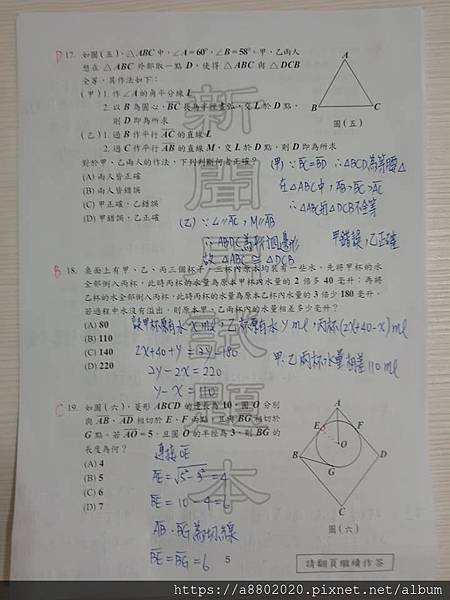 D 17. 如圖(五),△ABC中,∠A=60°,∠B=58°。甲、乙兩人
想在△ABC外部取一點D,使得△ABC與△DCB
全等,其作法如下:
(甲) 1. 作∠A的角平分線L
2. 以B為圓心,BC長為半徑畫弧,交L於D點,
則D即為所求
(乙) 1. 過B作平行AC的直線L
2. 過C作平行AB的直線M,交L於D點,則D即為所求
對於甲、乙兩人的作法,下列判斷何者正確?
(A) 兩人皆正確
(B) 兩人皆錯誤
(C) 甲正確,乙錯誤
(D) 甲錯誤,乙正確
A
B
C
圖(五)
(甲) ∵BC=BD ∴△BCD為等腰△
在△ABC中,AB>BC>AC
∴△ABC和△DCB不全等
(乙) ∵L∥AC,M∥AB
∴ABDC為平行四邊形
故△ABC≅△DCB
甲錯誤,乙正確
B 18. 桌面上有甲、乙、丙三個杯子,三杯內原本均裝有一些水。先將甲杯的水
全部倒入丙杯,此時丙杯的水量為原本甲杯內水量的2倍多40毫升;再將
乙杯的水全部倒入丙杯,此時丙杯的水量為原本乙杯內水量的3倍少180毫升。
若過程中水沒有溢出,則原本甲、乙兩杯內的水量相差多少毫升?
(A) 80
(B) 110
(C) 140
(D) 220
設甲杯原有水xml,乙杯原有水yml,丙杯(2x+40-x)ml
2x+40+y=3y-180
2y-2x=220
y-x=110
甲、乙兩杯水量相差110ml
C 19. 如圖(六),菱形ABCD的邊長為10,圓O分別
與AB、AD相切於E、F兩點,且與BG相切於
G點。若AO=5,且圓O的半徑為3,則BG的
長度為何?
(A) 4
(B) 5
(C) 6
(D) 7
連接OE
AE=√5²-3²=4
BE=10-4=6
AB、BG為切線
BE=BG=6
A
E
F
O
B
D
G
C
圖(六)
新聞用試題本
5
請翻頁繼續作答
https://a8802020.pixnet.net/album